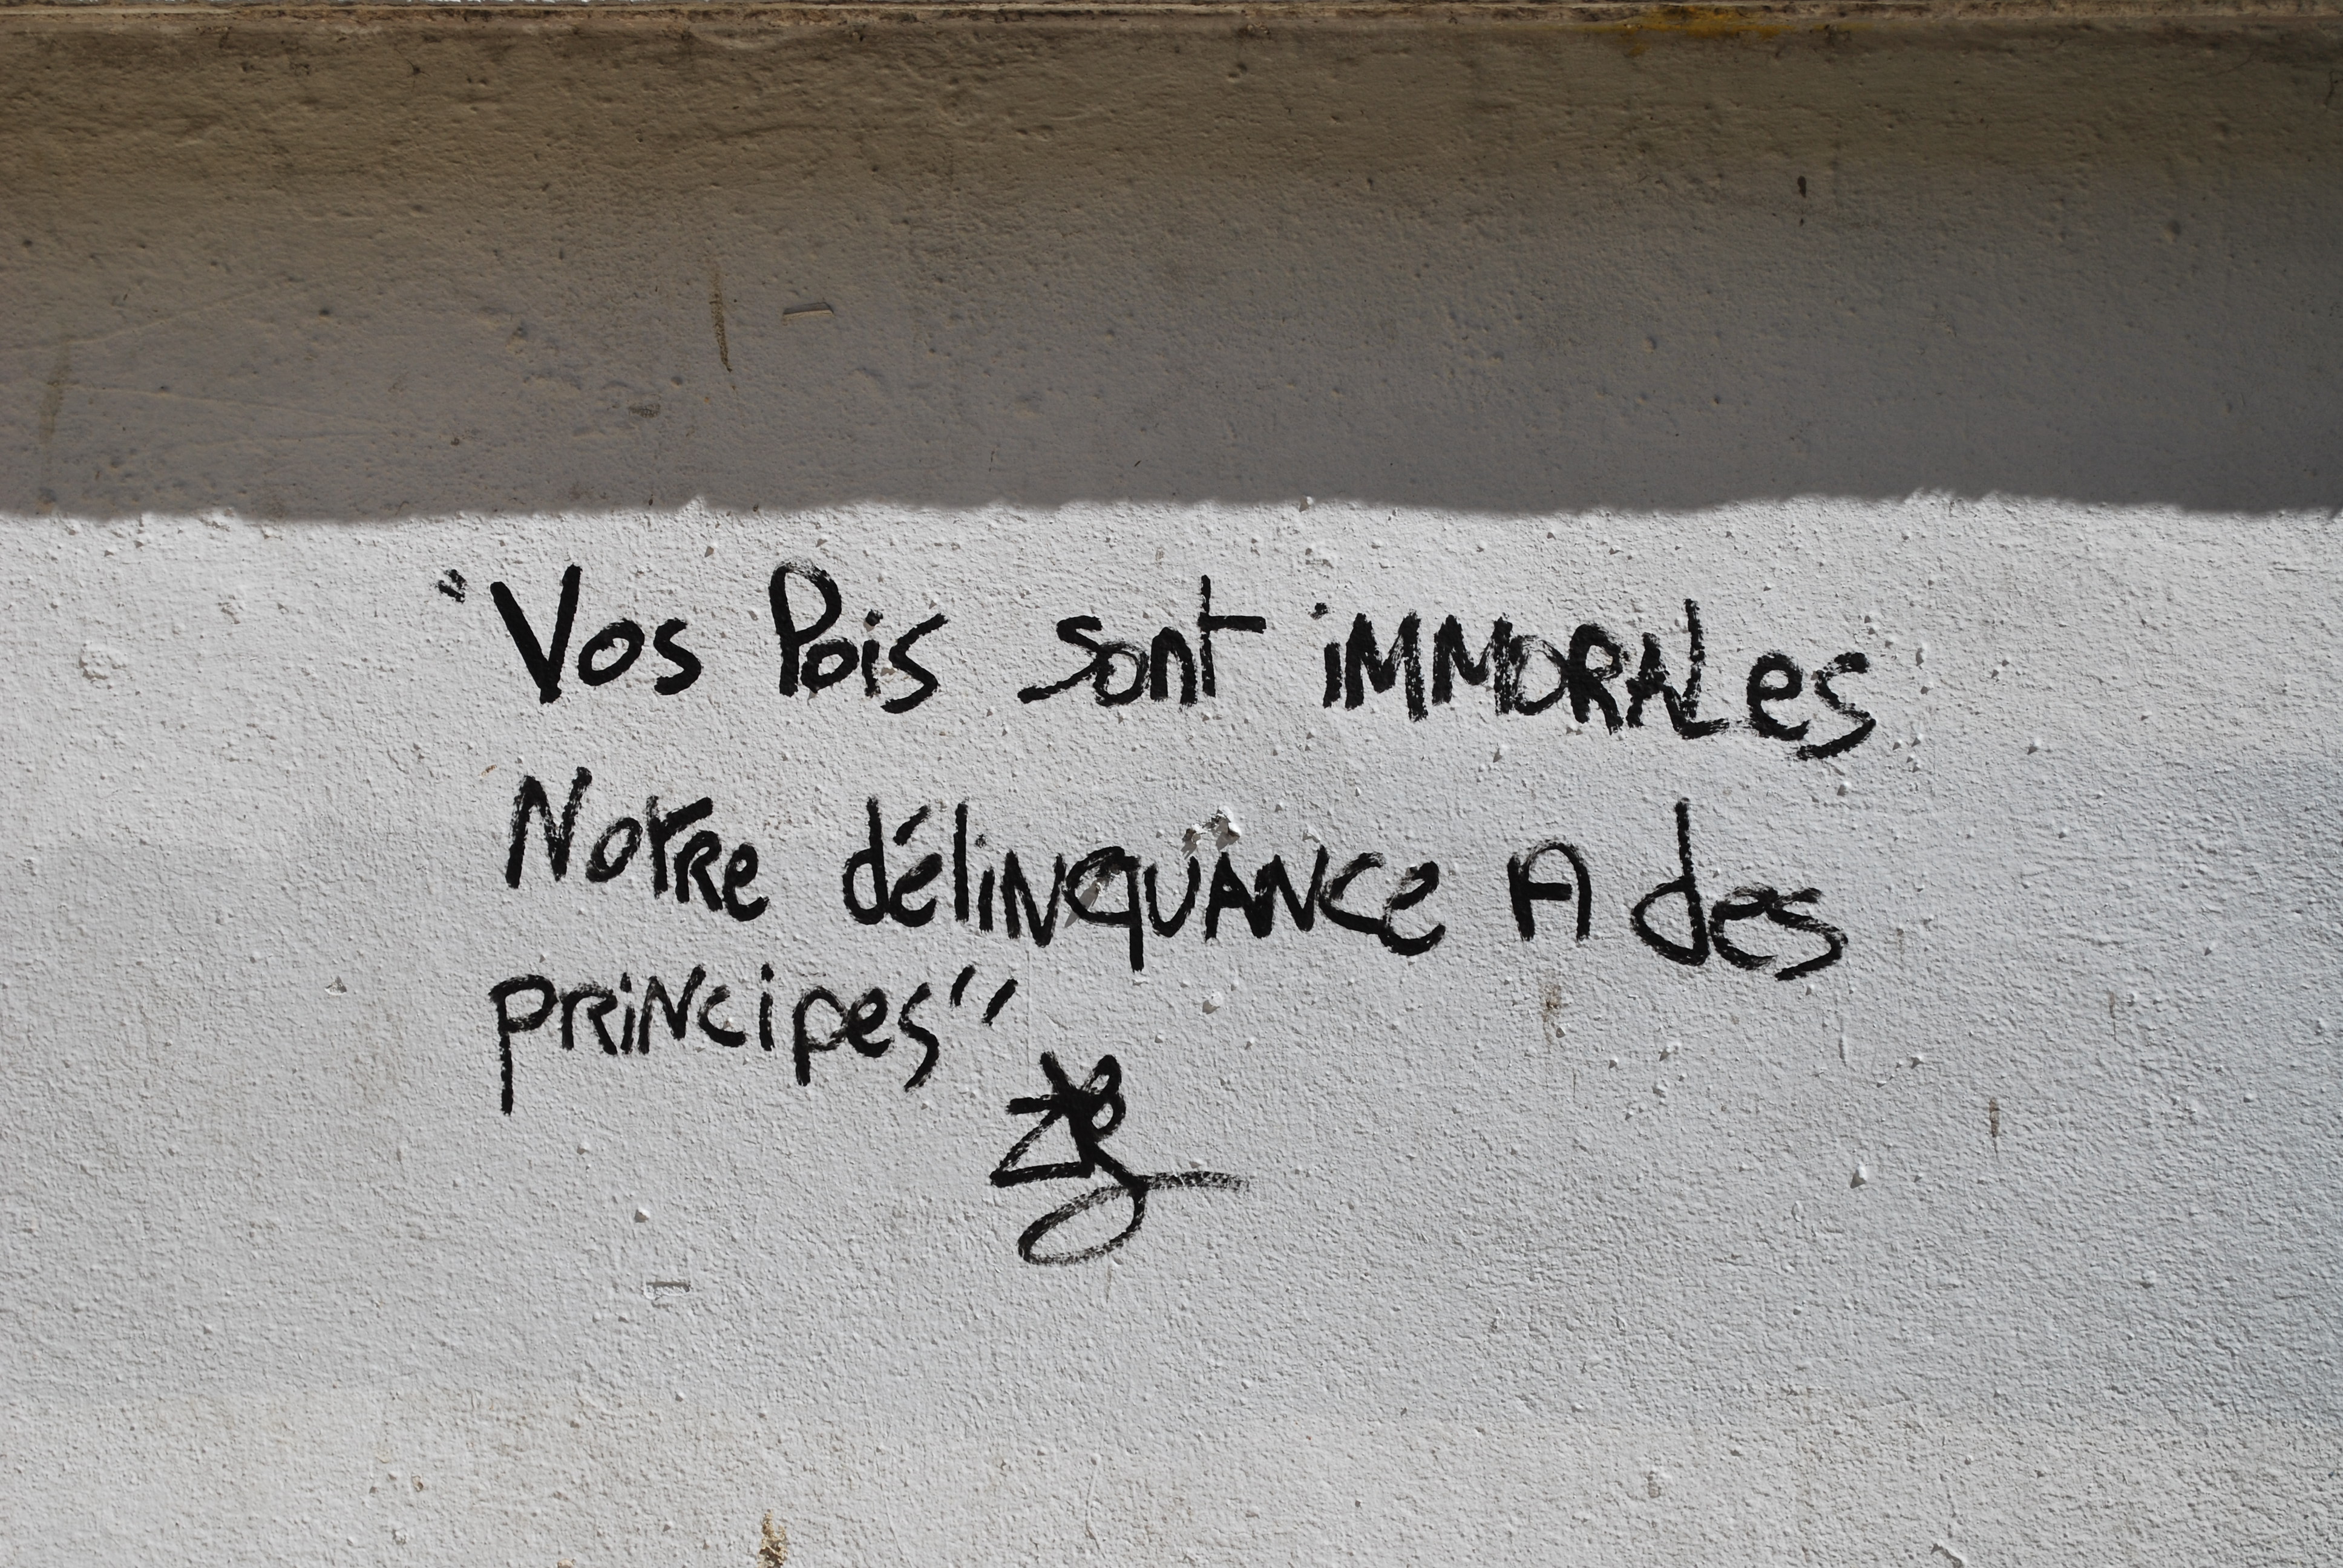 "Vos Pois sont iMMORALes
Notre délinquance A des
principes"